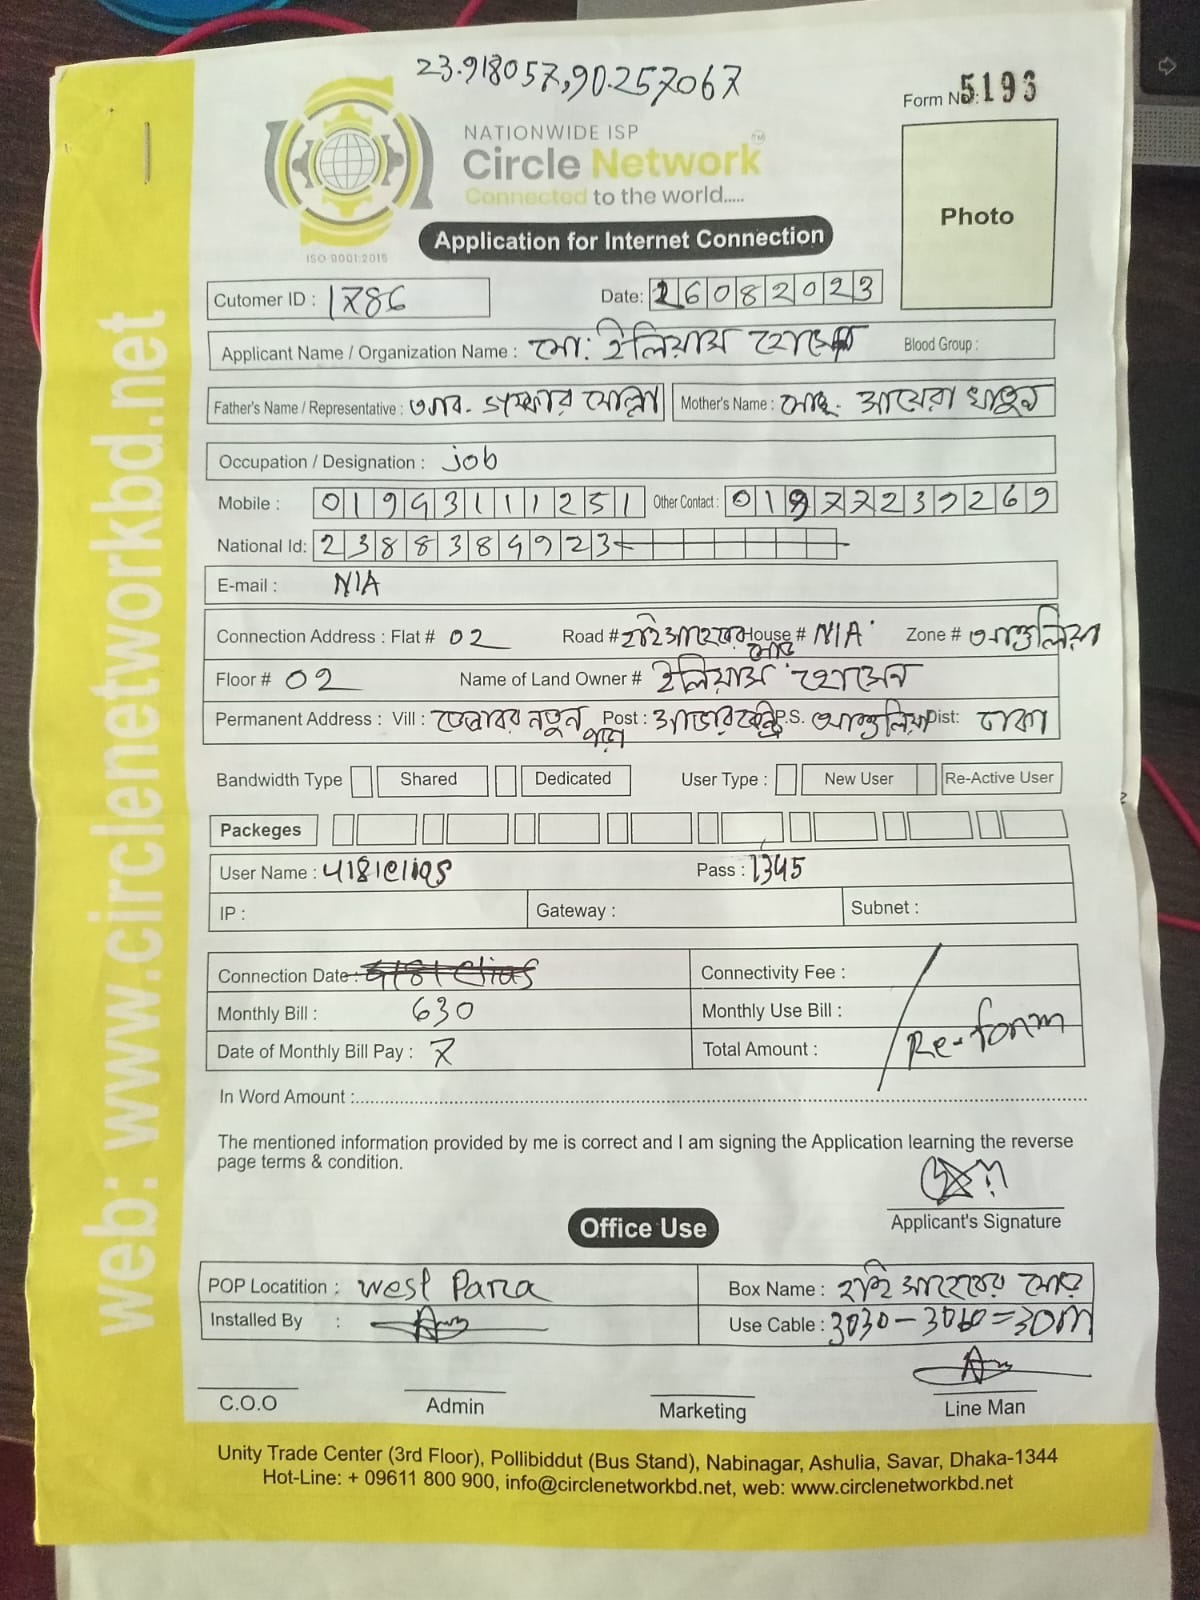 23.918057,90.257067
Form No: 5193
NATIONWIDE ISP
Circle Network TM
Connected to the world.....
ISO 9001:2015
Application for Internet Connection
Photo
Cutomer ID : 1786 Date: 26082023
Applicant Name / Organization Name : মো: ইলিয়াস হোসেন Blood Group :
Father's Name / Representative : মোল্লা Mother's Name : মোছা. আয়েরা খাতুন
Occupation / Designation : job
Mobile : 01943111251 Other Contact : 01977239269
National Id: 2388384923
E-mail : N/A
Connection Address : Flat # 02 Road # হাই সাহেবের মোড় House # N/A Zone # আশুলিয়া
Floor # 02 Name of Land Owner # ইলিয়াস হোসেন
Permanent Address : Vill : নতুন পাড়া Post : P.S. আশুলিয়া Dist: ঢাকা
Bandwidth Type Shared Dedicated User Type : New User Re-Active User
Packeges
User Name : 418elias Pass : 1345
IP : Gateway : Subnet :
Connection Date : Connectivity Fee :
Monthly Bill : 630 Monthly Use Bill :
Date of Monthly Bill Pay : 7 Total Amount : Re-form
In Word Amount :
The mentioned information provided by me is correct and I am signing the Application learning the reverse
page terms & condition.
Applicant's Signature
Office Use
POP Locatition : West Para Box Name : হাই সাহেবের মোড়
Installed By : Use Cable : 3030-3060=30m
C.O.O Admin Marketing Line Man
Unity Trade Center (3rd Floor), Pollibiddut (Bus Stand), Nabinagar, Ashulia, Savar, Dhaka-1344
Hot-Line: + 09611 800 900, info@circlenetworkbd.net, web: www.circlenetworkbd.net
web: www.circlenetworkbd.net